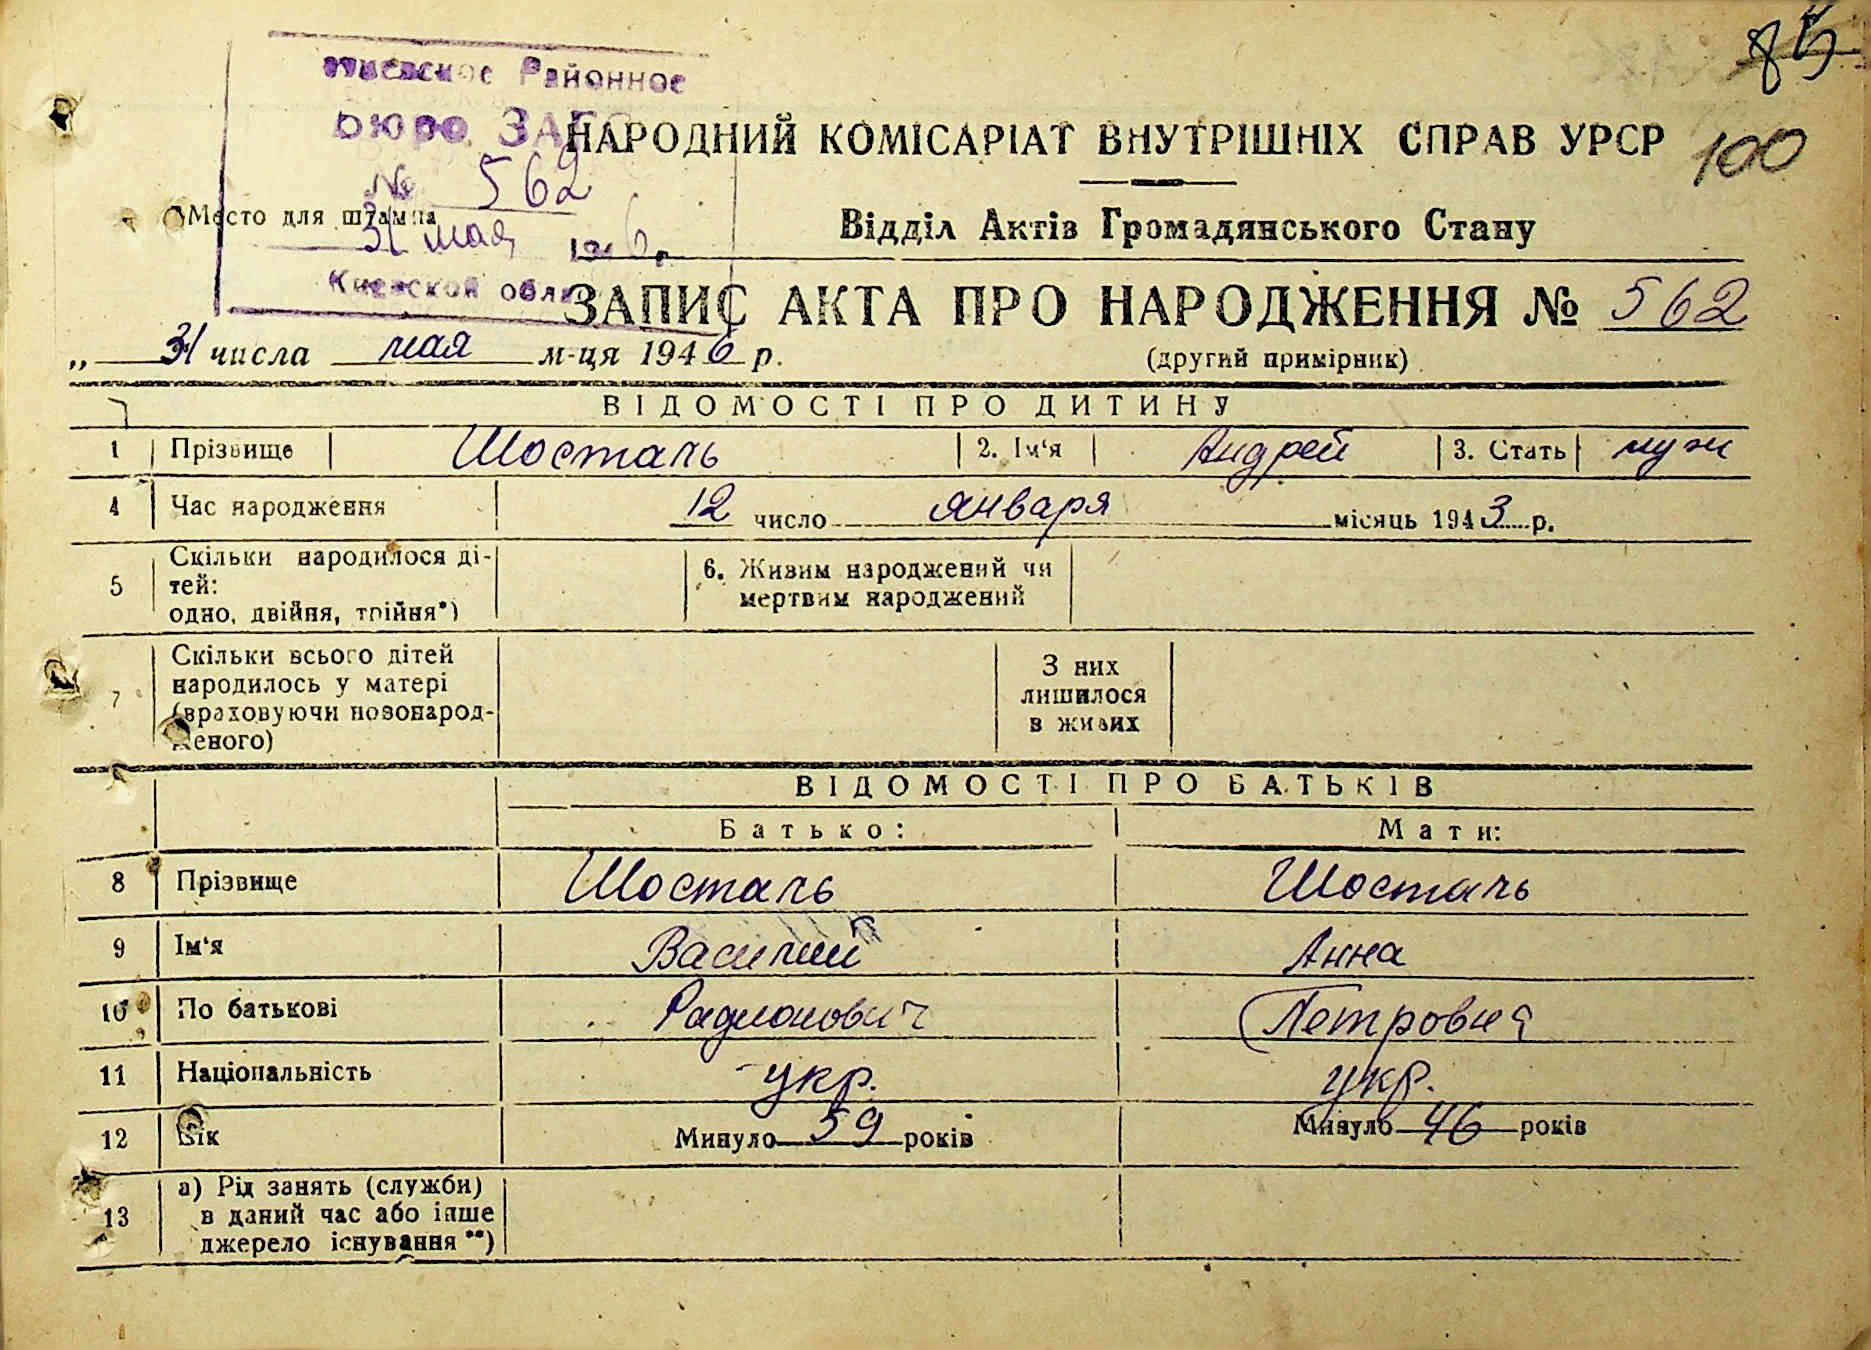 Районное
Бюро ЗАГС
№ 562
Место для штампа
31 мая 1946 г.
Киевской обл.
85
100
НАРОДНИЙ КОМІСАРІАТ ВНУТРІШНІХ СПРАВ УРСР
Відділ Актів Громадянського Стану
ЗАПИС АКТА ПРО НАРОДЖЕННЯ № 562
„ 31 числа мая м-ця 1946 р. (другий примірник)
ВІДОМОСТІ ПРО ДИТИНУ
1 Прізвище Шосталь 2. Ім‘я Андрей 3. Стать муж
4 Час народження 12 число января місяць 1943 р.
5 Скільки народилося ді-
тей:
одно, двійня, трійня*)
6. Живим народжений чи
мертвим народжений
7 Скільки всього дітей
народилось у матері
(враховуючи новонарод-
женого)
З них
лишилося
в живих
ВІДОМОСТІ ПРО БАТЬКІВ
Батько: Мати:
8 Прізвище Шосталь Шосталь
9 Ім‘я Василий Анна
10 По батькові Радионович Петровна
11 Національність укр. укр.
12 Вік Минуло 59 років Минуло 46 років
13 а) Рід занять (служби)
в даний час або інше
джерело існування**)